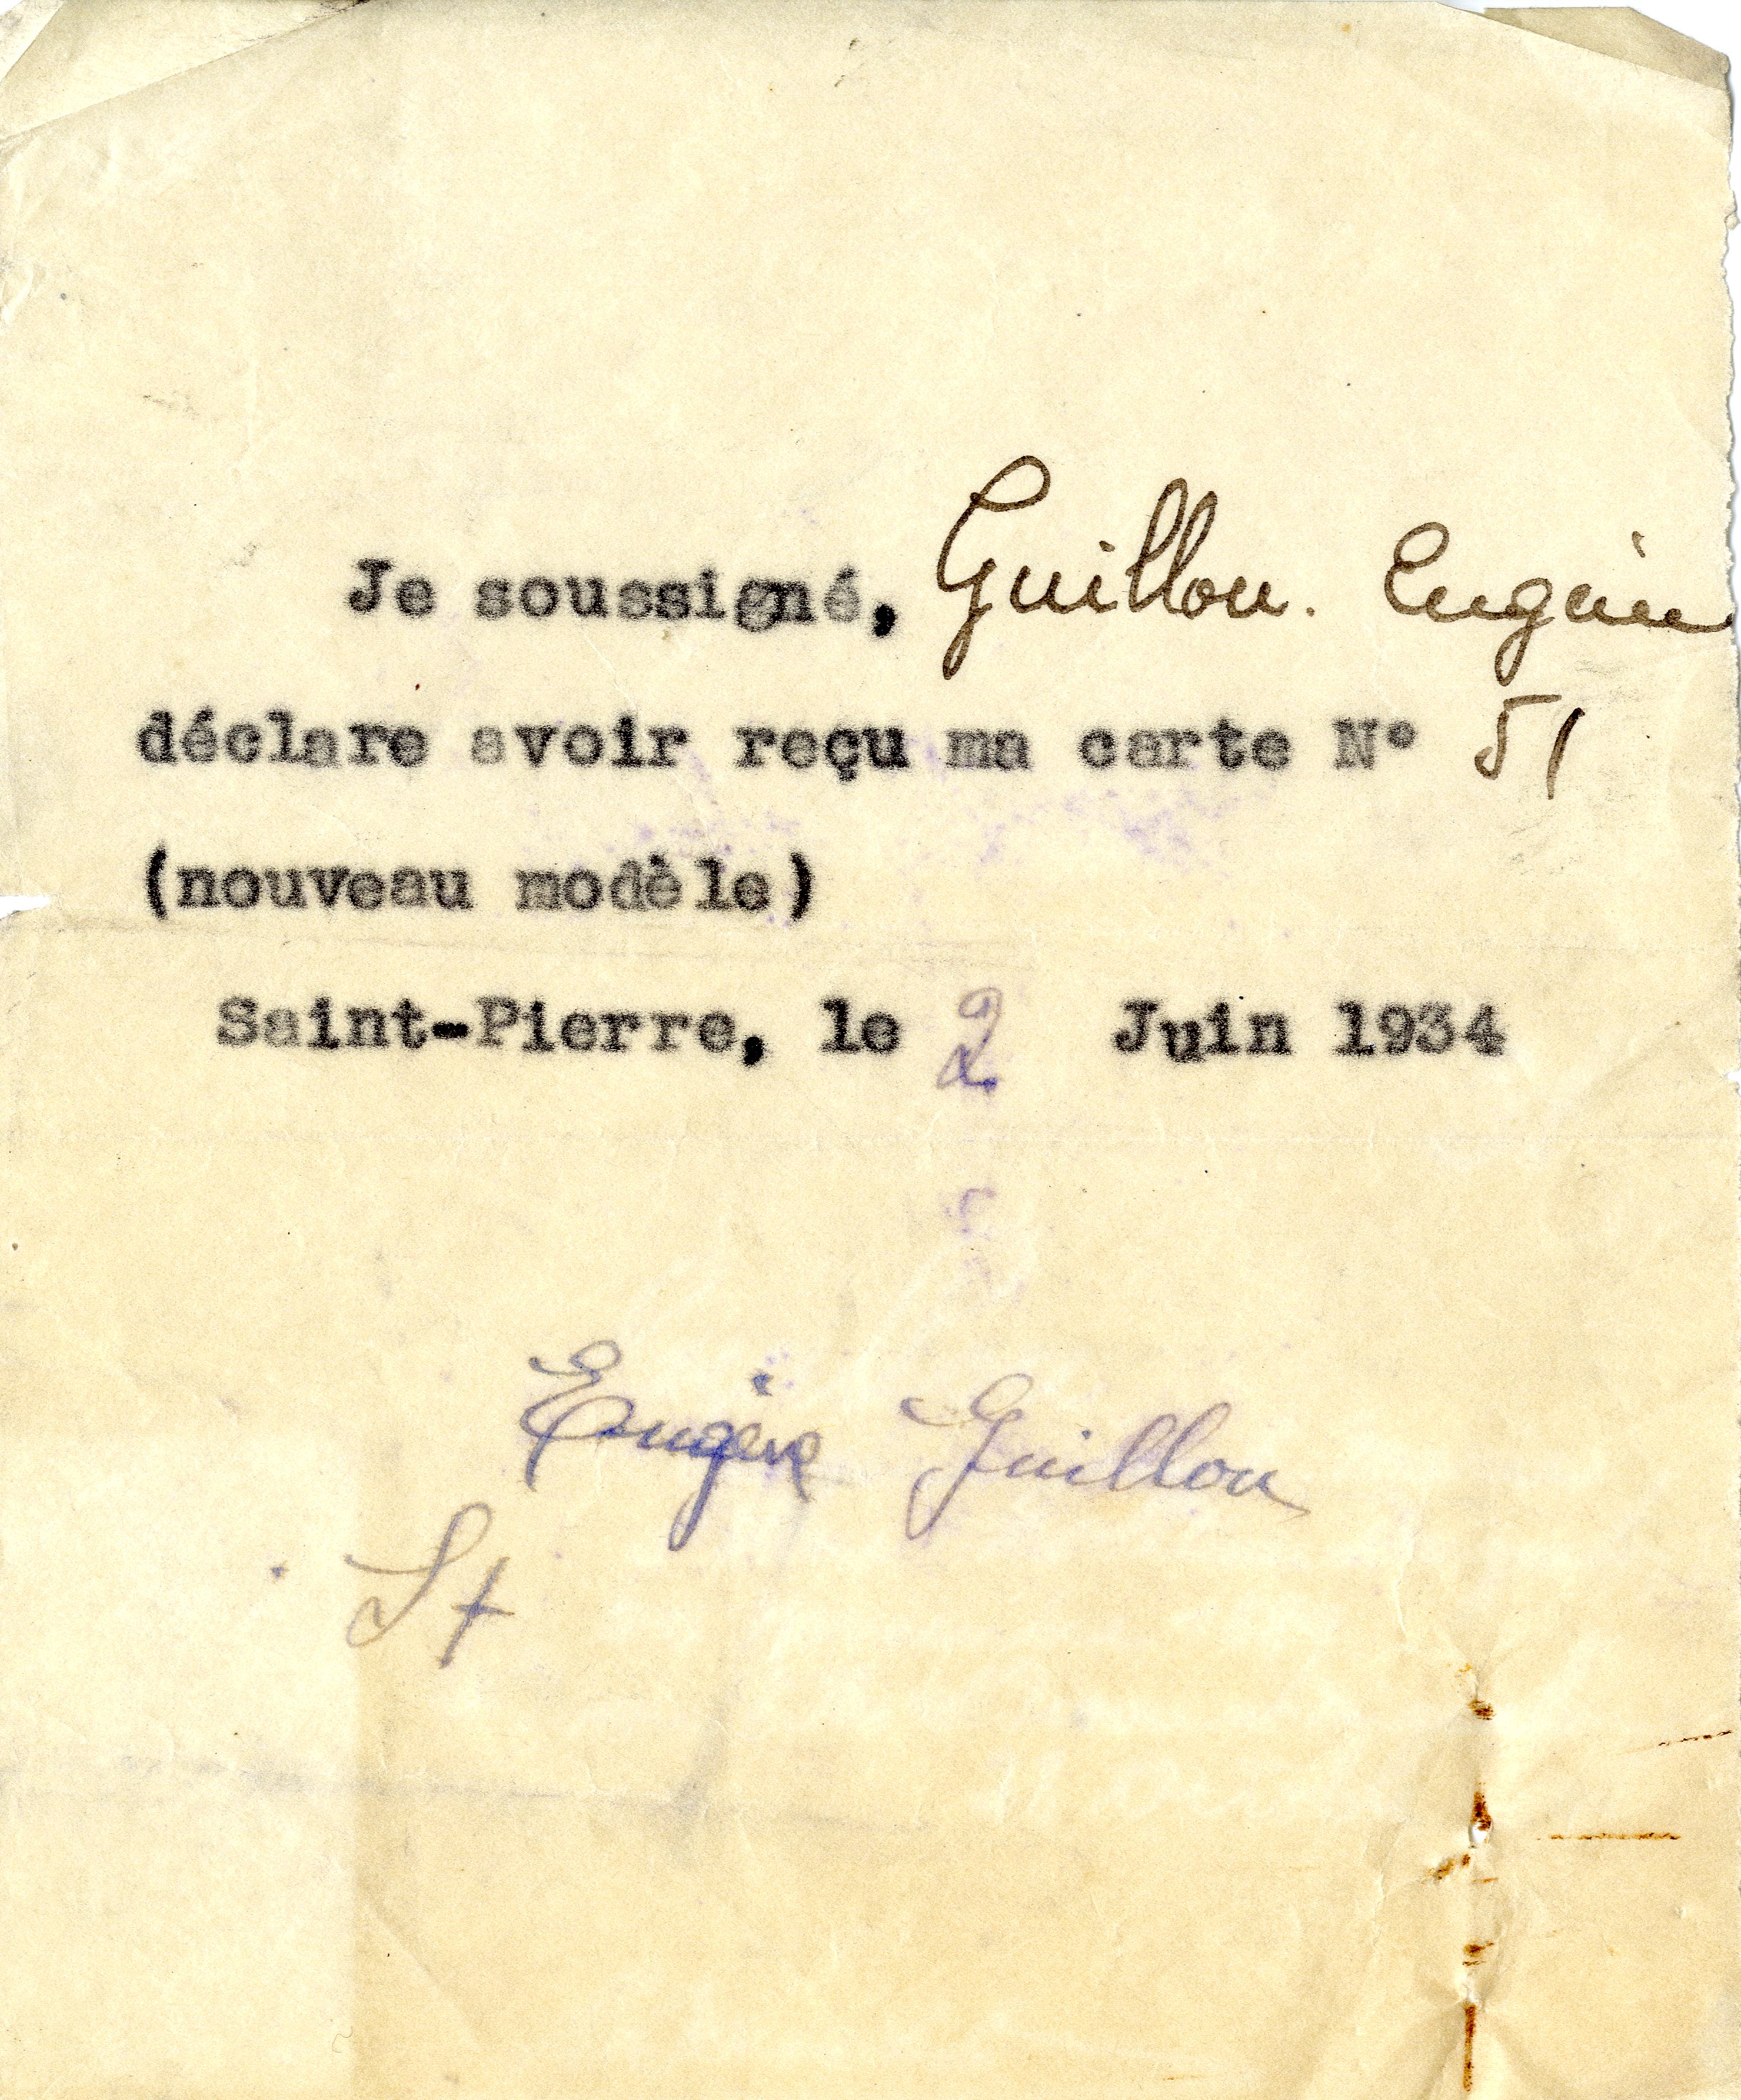 Je soussigné, Guillou. Eugène
déclare avoir reçu ma carte N° 51
(nouveau modèle)
Saint-Pierre, le 2 Juin 1934
Eugène Guillou
St